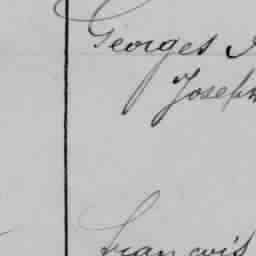 Georges
Joseph
François